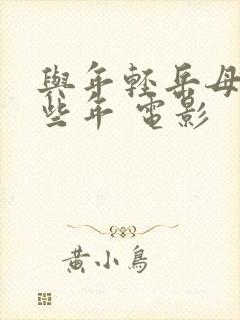 與年輕岳母
些年 電影
黃小鳥